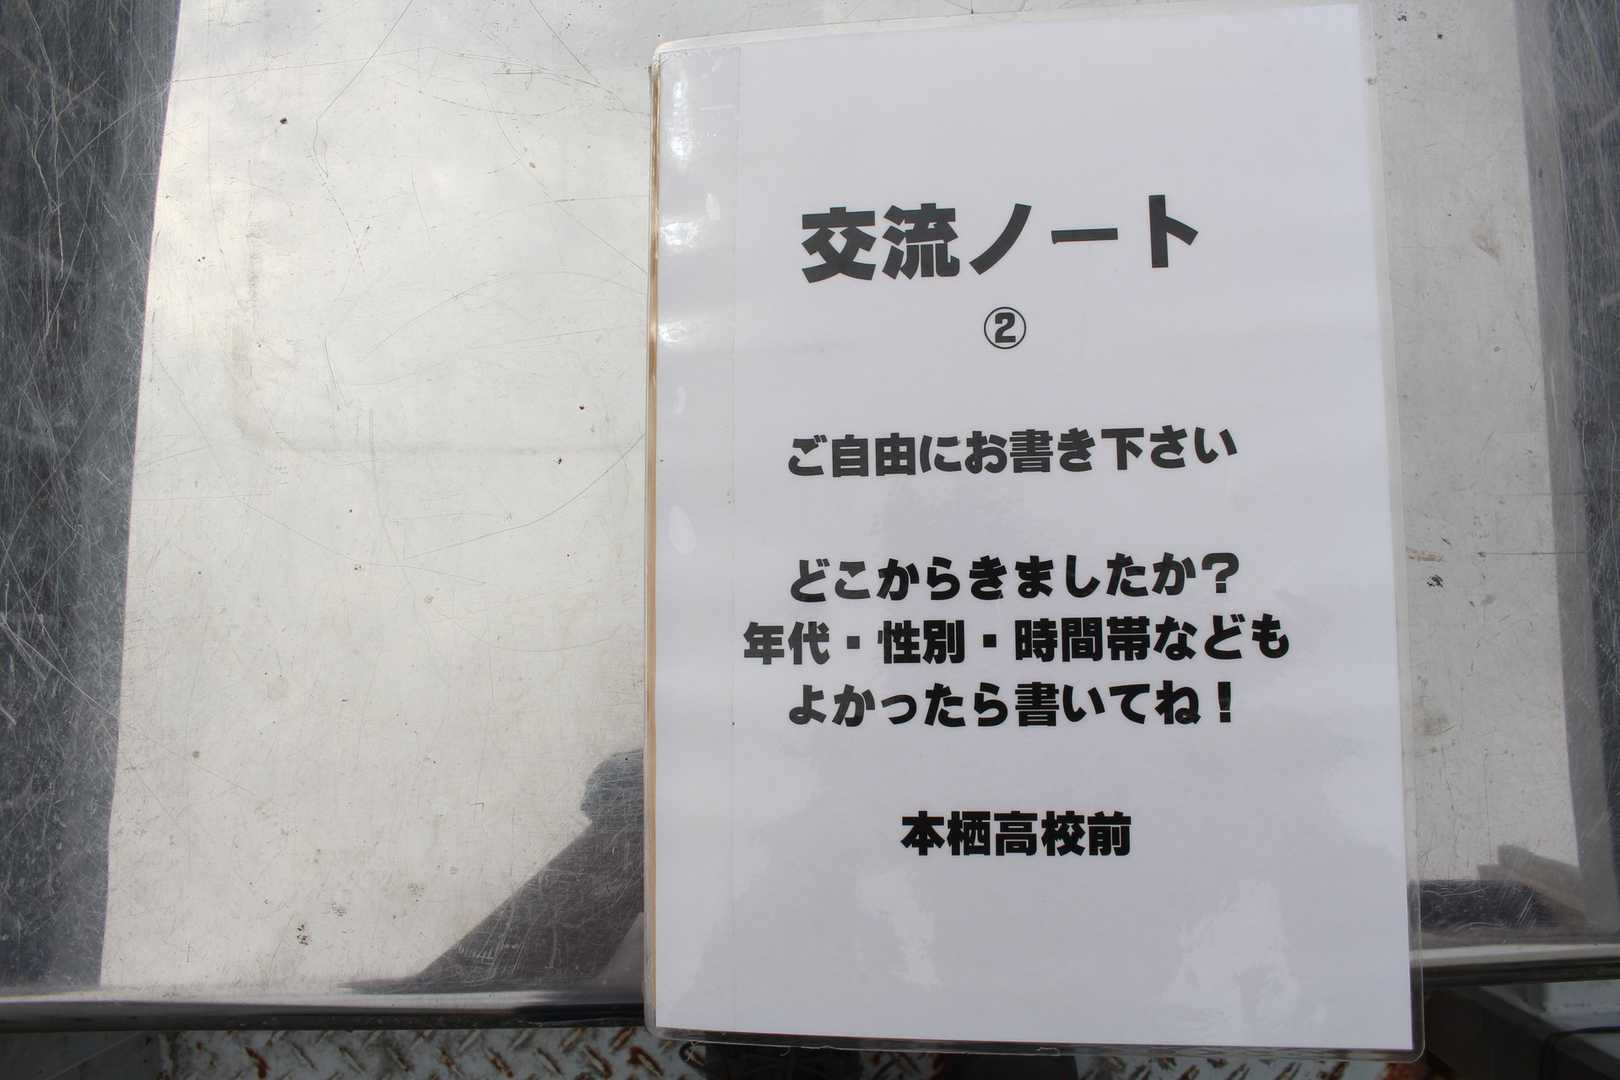 交流ノート
②
ご自由にお書き下さい
どこからきましたか？
年代・性別・時間帯なども
よかったら書いてね！
本栖高校前